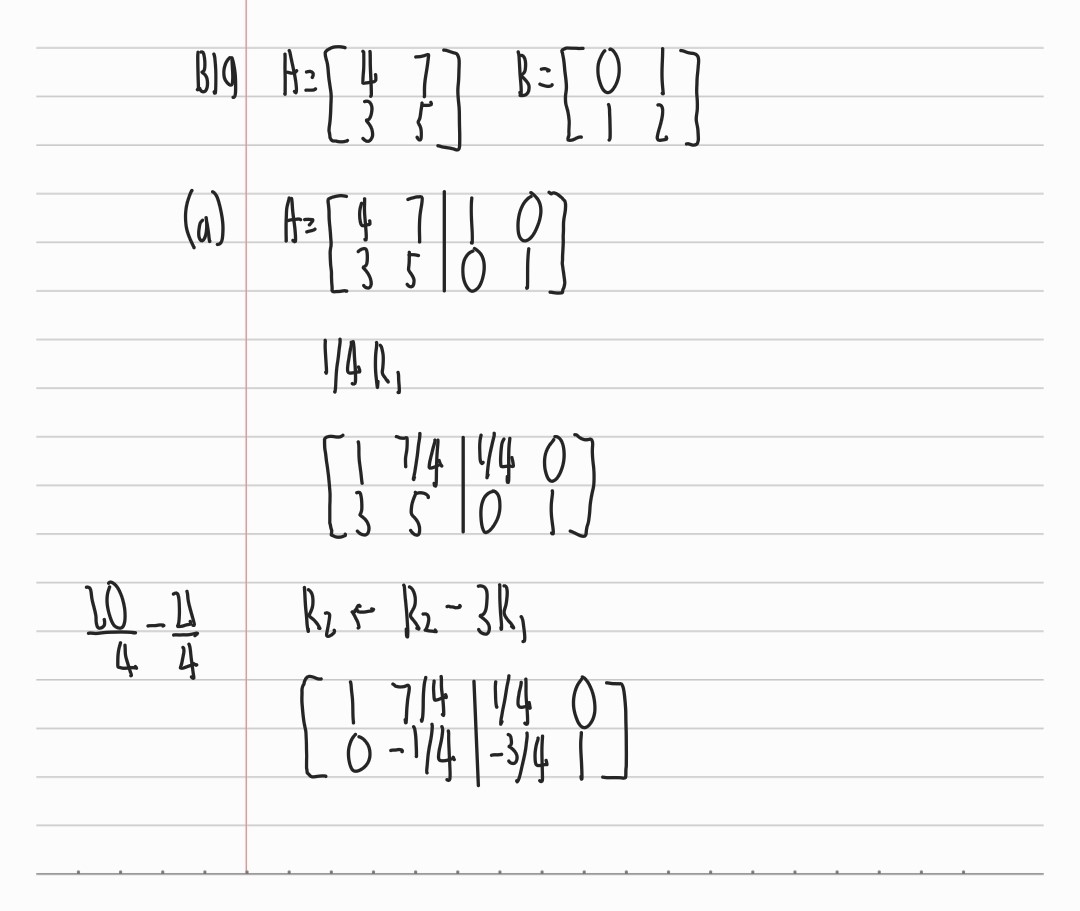 B19 A = [ 4 7 B = [ 0 1
3 5 ] 1 2 ]
(a) A = [ 4 7 | 1 0
3 5 | 0 1 ]
1/4 R₁
[ 1 7/4 | 1/4 0
3 5 | 0 1 ]
20/4 - 21/4 R₂ ← R₂ - 3R₁
[ 1 7/4 | 1/4 0
0 -1/4 | -3/4 1 ]